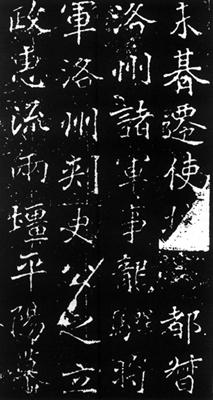 未朞遷使都督
洛州諸軍事龍驤將
軍洛州刺史公之立
政惠流兩壃平陽